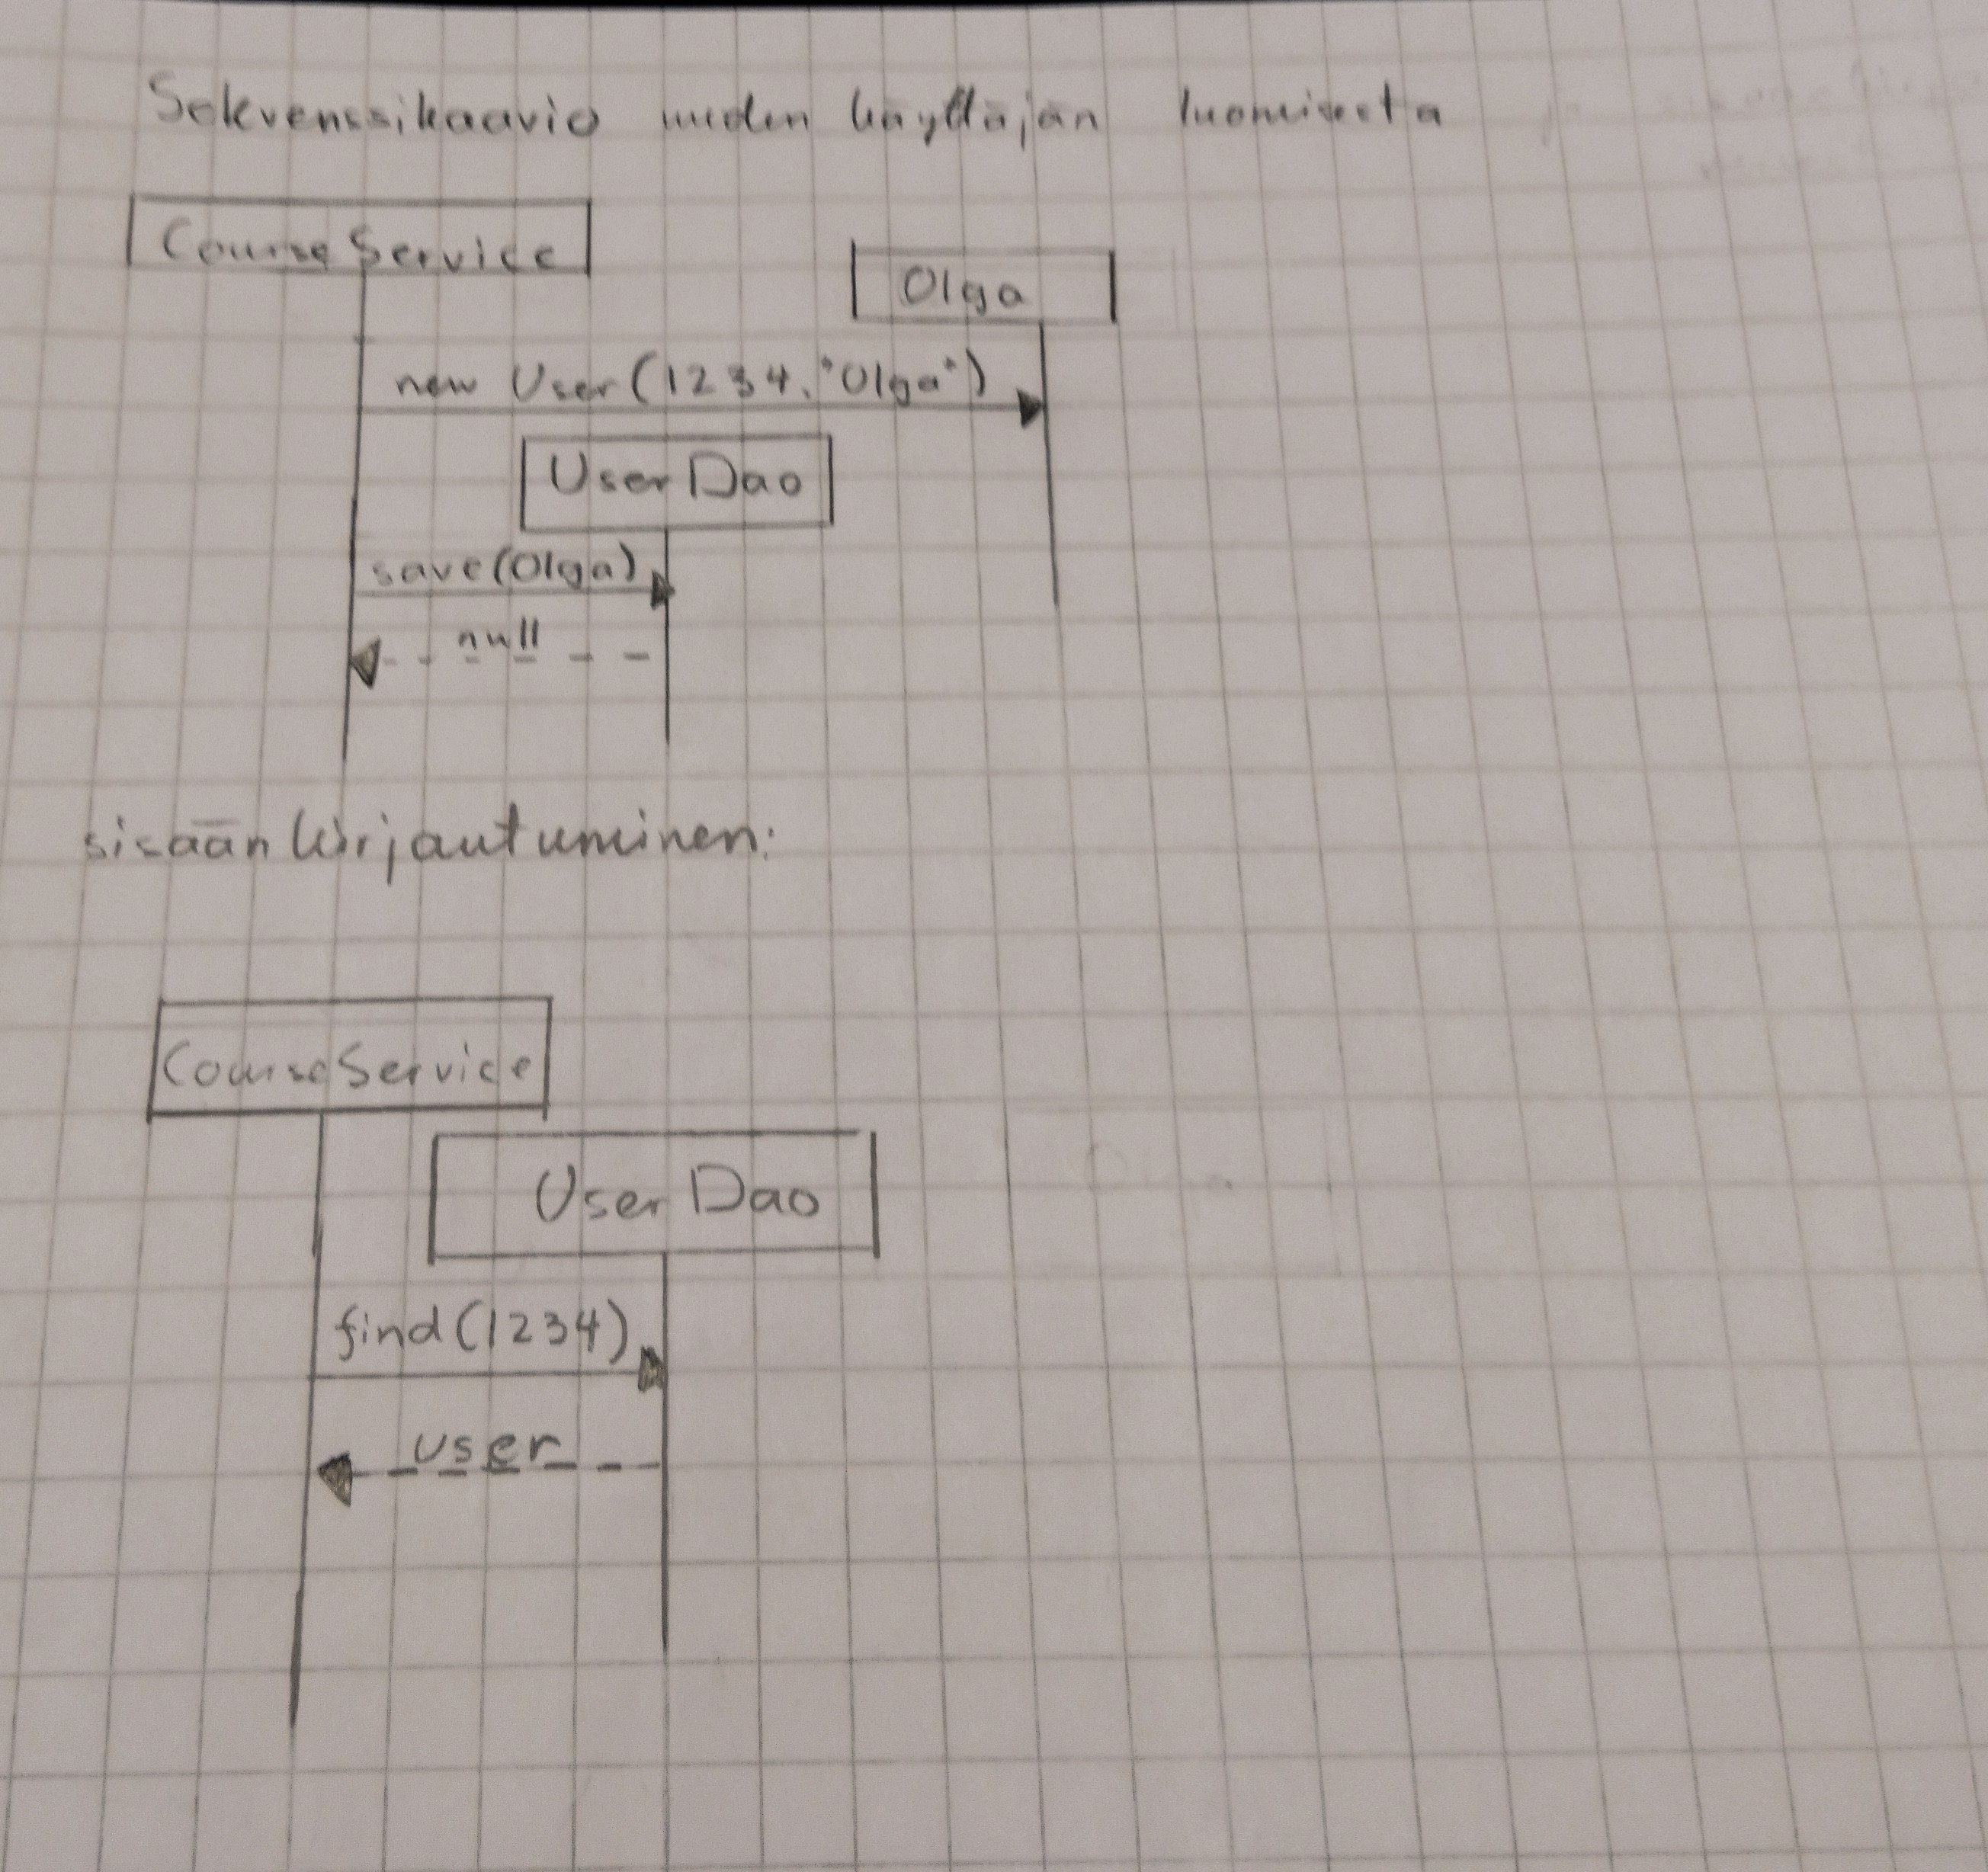 Sekvenssikaavio uuden käyttäjän luomisesta
CourseService
Olga
new User(1234, "Olga")
UserDao
save(Olga)
null
sisäänkirjautuminen:
CourseService
UserDao
find(1234)
user